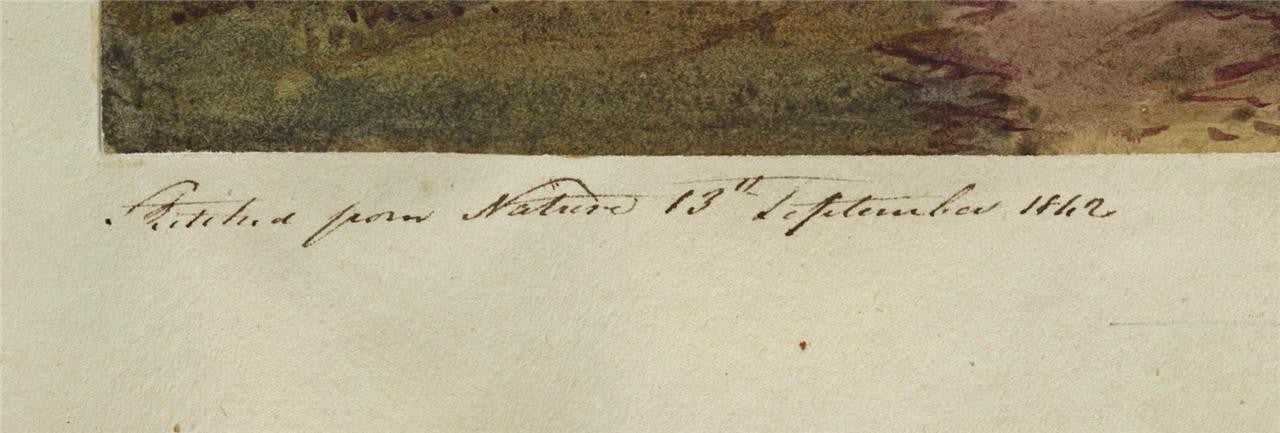 Sketched from Nature 13th September 1842